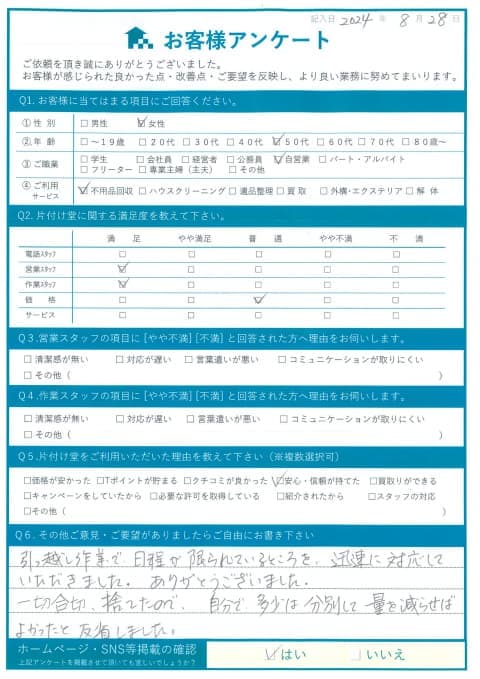 記入日 2024 年 8 月 28 日
お客様アンケート
ご依頼を頂き誠にありがとうございました。
お客様が感じられた良かった点・改善点・ご要望を反映し、より良い業務に努めてまいります。
Q1.お客様に当てはまる項目にご回答ください。
①性別 □男性 ☑女性
②年齢 □～19歳 □20代 □30代 □40代 ☑50代 □60代 □70代 □80歳～
③ご職業 □学生 □会社員 □経営者 □公務員 ☑自営業 □パート・アルバイト
□フリーター □専業主婦（主夫） □その他
④ご利用サービス ☑不用品回収 □ハウスクリーニング □遺品整理 □買取 □外構・エクステリア □解体
Q2.片付け堂に関する満足度を教えて下さい。
満足 やや満足 普通 やや不満 不満
電話スタッフ □ □ □ □ □
営業スタッフ ☑ □ □ □ □
作業スタッフ ☑ □ □ □ □
価格 □ □ ☑ □ □
サービス □ □ □ □ □
Q3.営業スタッフの項目に[やや不満][不満]と回答された方へ理由をお伺いします。
□清潔感が無い □対応が遅い □言葉遣いが悪い □コミュニケーションが取りにくい
□その他（ ）
Q4.作業スタッフの項目に[やや不満][不満]と回答された方へ理由をお伺いします。
□清潔感が無い □対応が遅い □言葉遣いが悪い □コミュニケーションが取りにくい
□その他（ ）
Q5.片付け堂をご利用いただいた理由を教えて下さい（※複数選択可）
□価格が安かった □Tポイントが貯まる □クチコミが良かった ☑安心・信頼が持てた □買取りができる
□キャンペーンをしていたから □必要な許可を取得している □紹介されたから □スタッフの対応
□その他（ ）
Q6.その他ご意見・ご要望がありましたらご自由にお書き下さい
引っ越し作業で日程が限られているところを、迅速に対応して
いただきました。ありがとうございました。
一切合切、捨てたので、自分で多少は分別して量を減らせば
よかったと反省しました。
ホームページ・SNS等掲載の確認 ☑はい □いいえ
上記アンケートを掲載させて頂いても宜しいでしょうか？